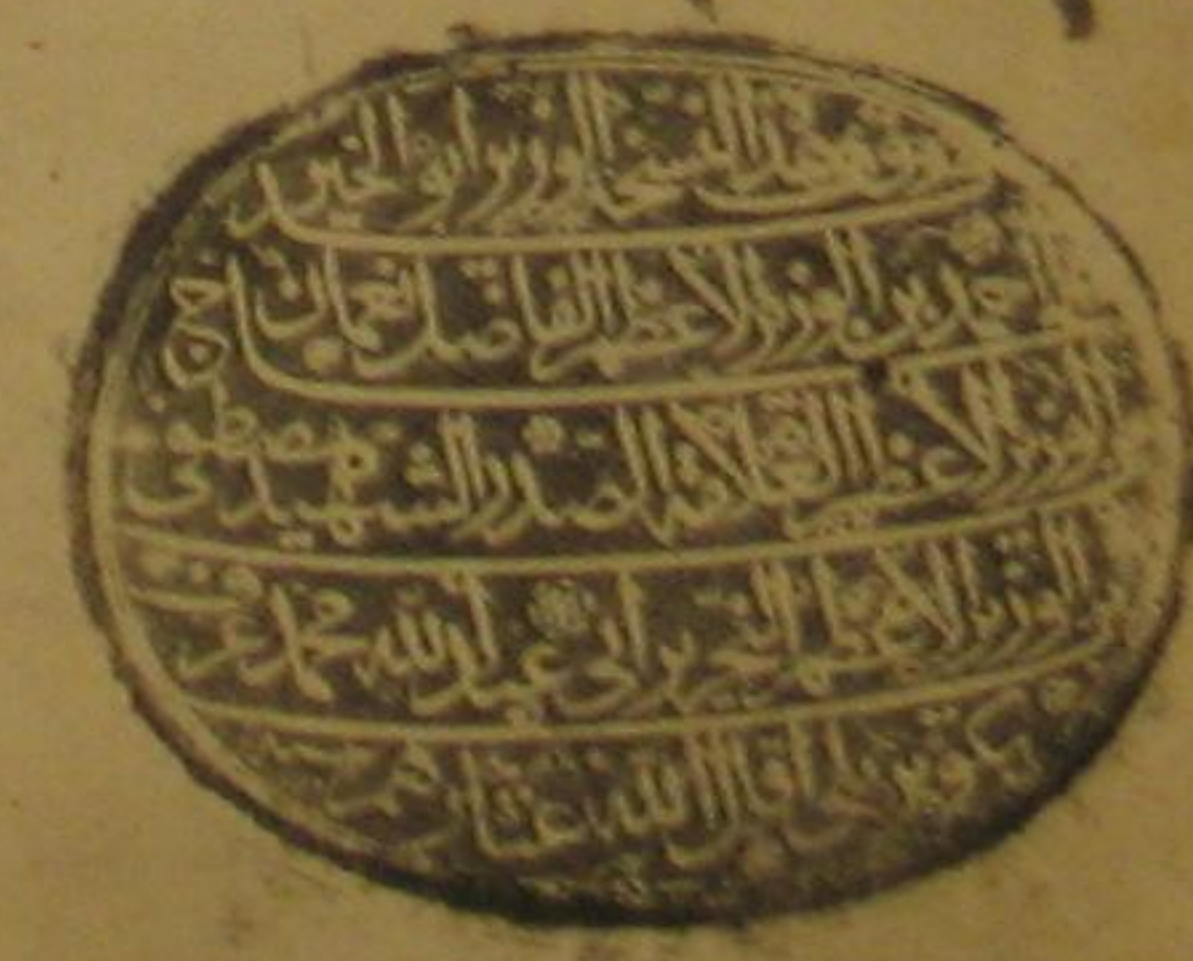 وقف هذه النسخة الوزير ابو الخير
احمد بن الوزير الاعظم الفاضل نعمان بن
الوزير الاعظم العلامة الصدر الشهيد مصطفى
بن الوزير الاعظم النحرير ابي عبد الله محمد عرف
بكوبريلي اقال الله عثارهم